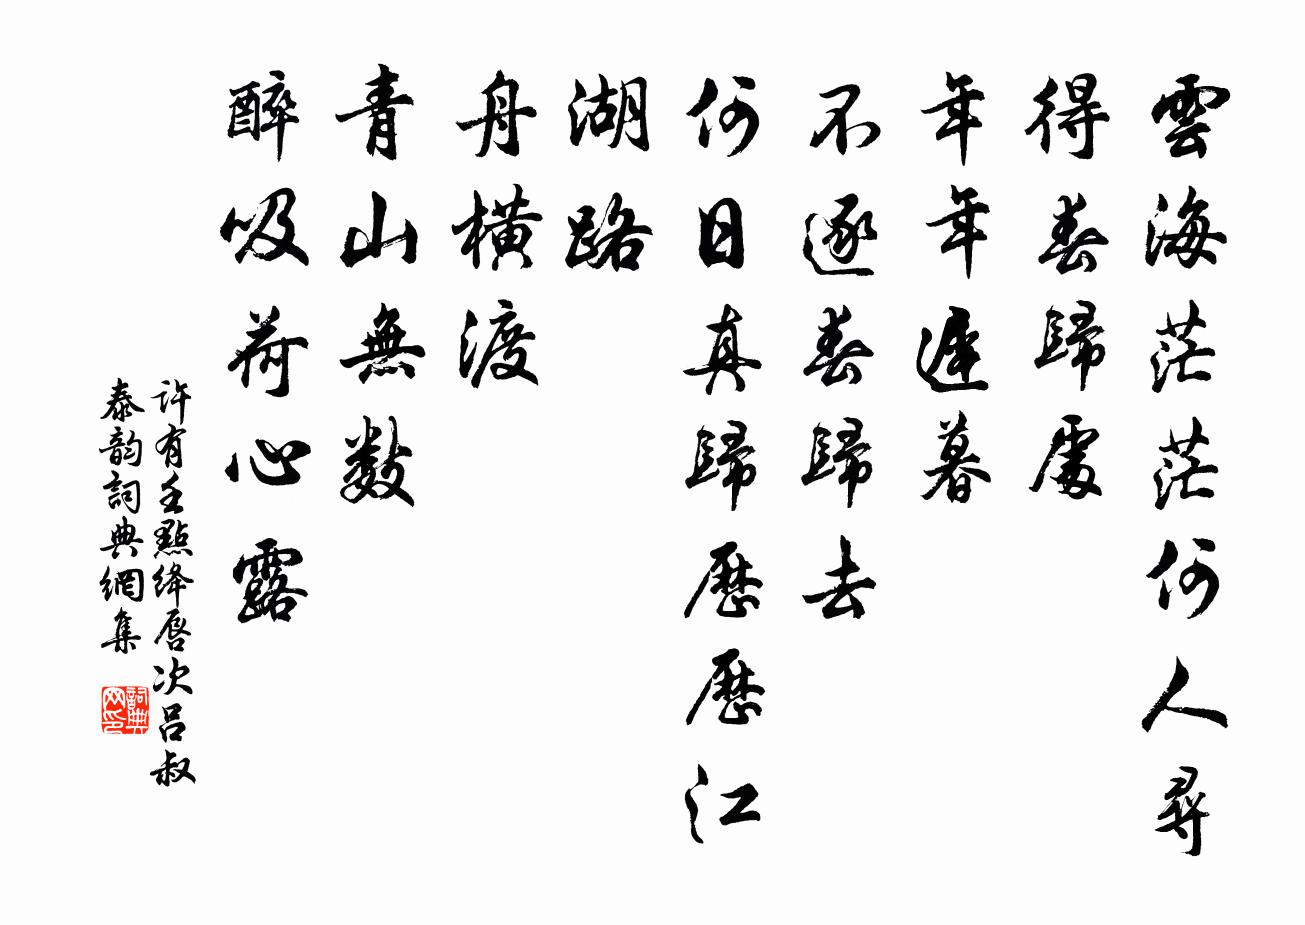 雲海茫茫何人尋
得春歸處
年年遲暮
不逐春歸去
何日真歸歷歷江
湖路
舟橫渡
青山無數
醉吸荷心露
許有壬點絳唇次呂叔
泰韵詞典網集
詞典网印